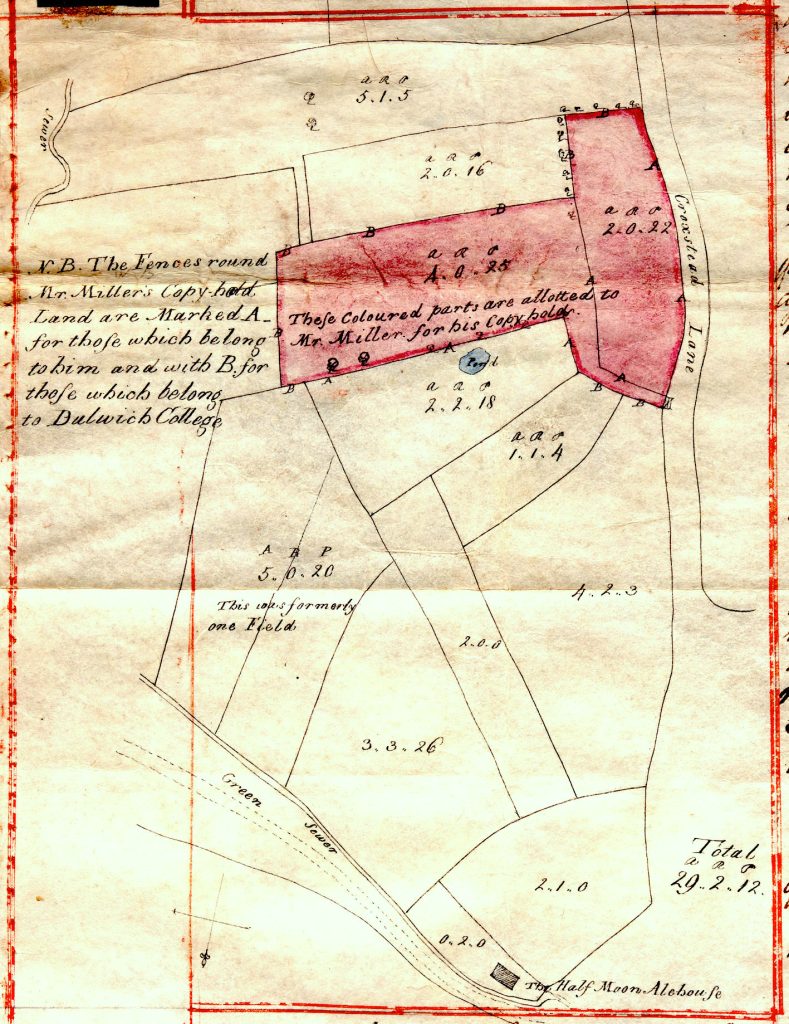 a R P
5.1.5
Sewer
a a P
2.0.16
B
B
A
a a P
2.0.22
Croxstead Lane
B
B
B
a a P
4.0.25
A
A
N.B. The Fences round
Mr. Miller's Copy-hold
Land are Marked A_
for those which belong
to him and with B. for
those which belong
to Dulwich College
These Coloured parts are allotted to
Mr. Miller for his Copyhold.
B
A
A
B
A
Pond
a a P
2.2.18
A
B
B
a a P
1.1.4
A R P
5.0.20
This was formerly
one Field
4.2.3
2.0.0
3.3.26
Green
Sewer
2.1.0
0.2.0
Total
a R P
29.2.12.
The Half Moon Alehouse